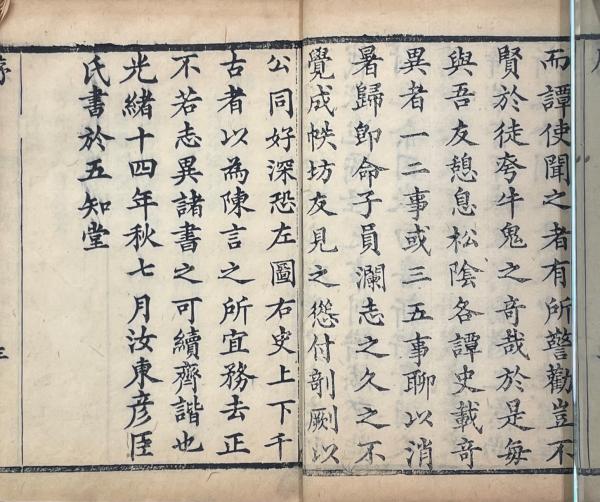 而譚使聞之者有所警勸豈不
賢於徒夸牛鬼之奇哉於是每
與吾友憩息松陰各譚史載奇
異者一二事或三五事聊以消
暑歸即命子員瀾志之久之不
覺成帙坊友見之慫付剞劂以
公同好深恐左圖右史上下千
古者以為陳言之所宜務去正
不若志異諸書之可續齊諧也
光緒十四年秋七月汝東彥臣
氏書於五知堂
序
三